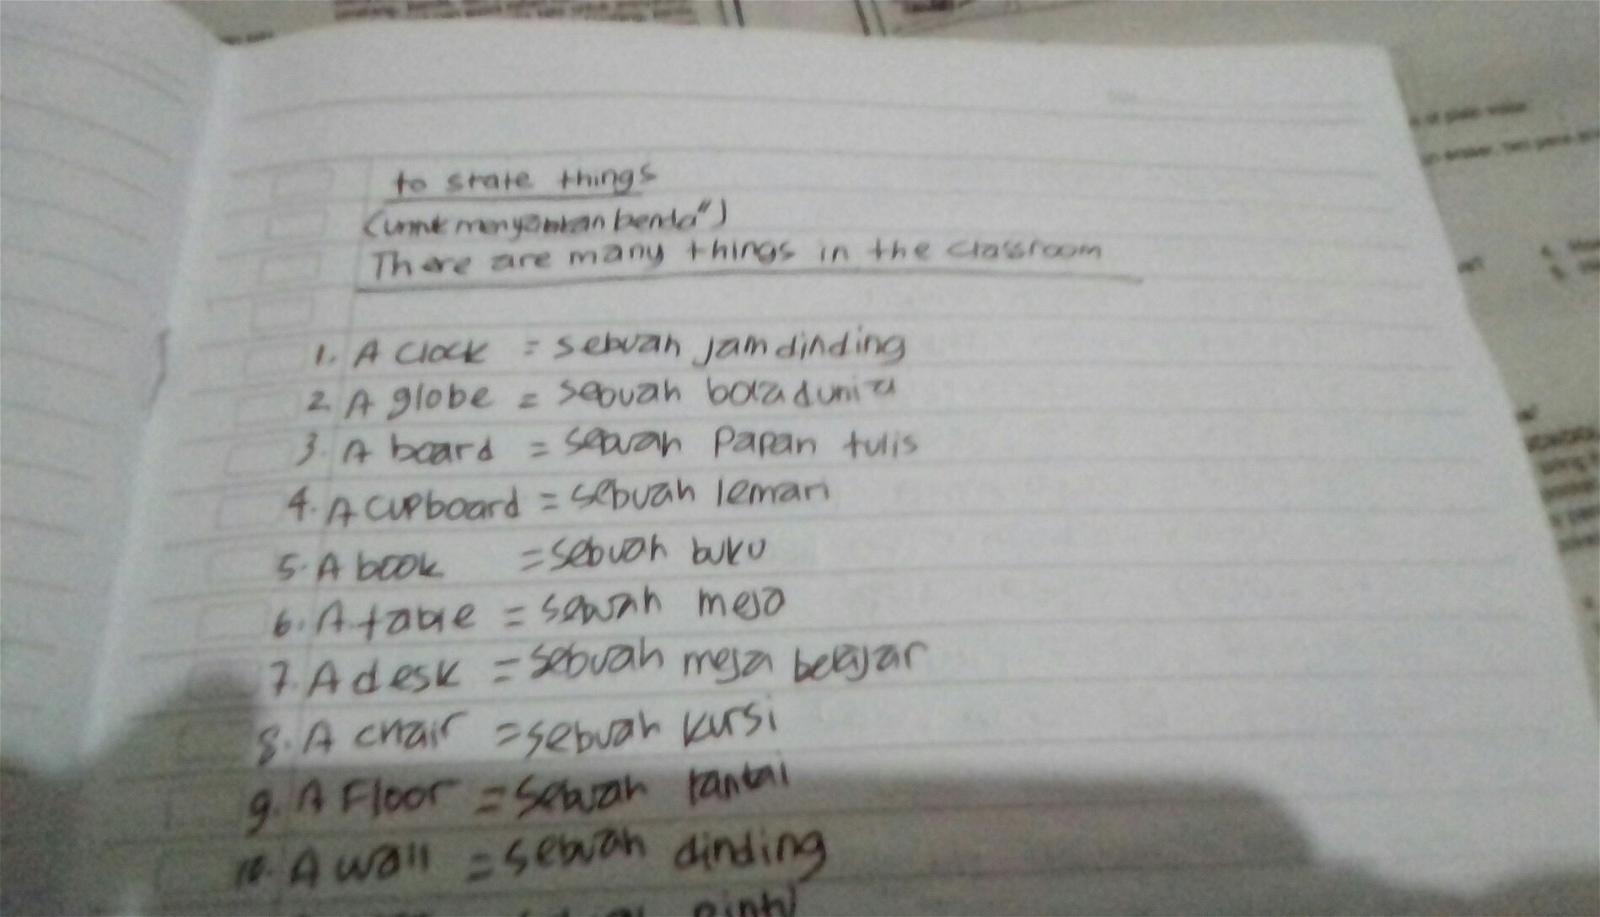 to state things
(untuk menyatakan benda")
There are many things in the classroom
1. A clock = sebuah jam dinding
2. A globe = sebuah bola dunia
3. A board = sebuah papan tulis
4. A cupboard = sebuah lemari
5. A book = sebuah buku
6. A table = sebuah meja
7. A desk = sebuah meja belajar
8. A chair = sebuah kursi
9. A Floor = sebuah lantai
10. A wall = sebuah dinding